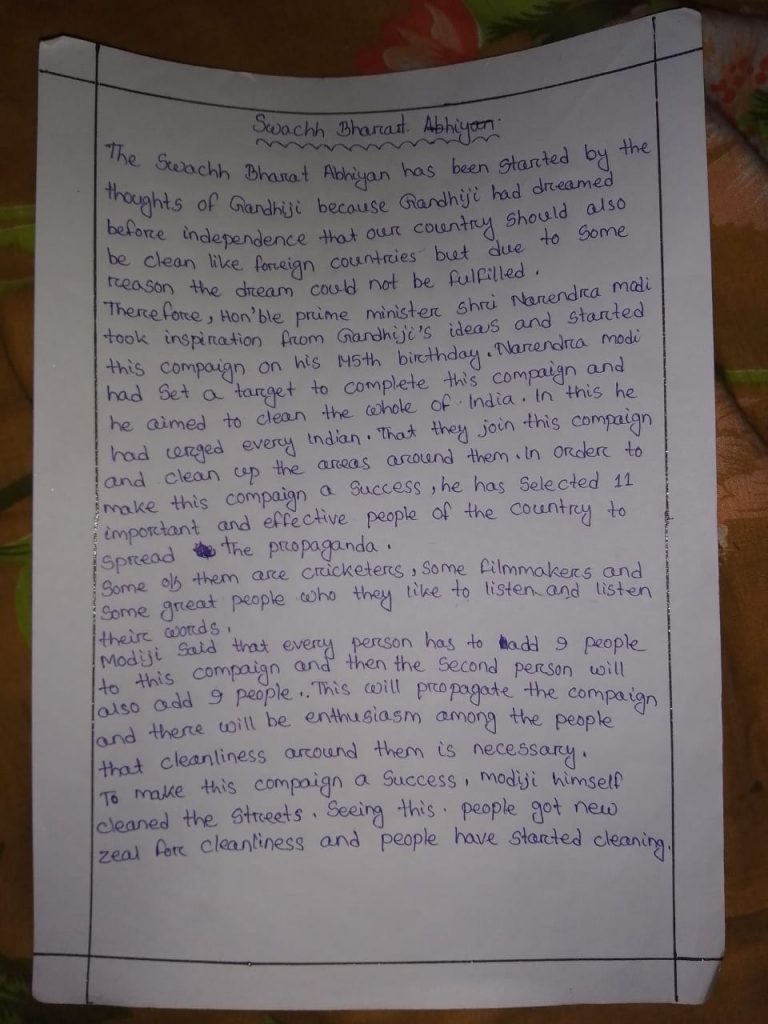 Swachh Bharat Abhiyan.
The Swachh Bharat Abhiyan has been started by the
thoughts of Gandhiji because Gandhiji had dreamed
before independence that our country should also
be clean like foreign countries but due to some
reason the dream could not be fulfilled.
Therefore, Hon'ble prime minister shri Narendra modi
took inspiration from Gandhiji's ideas and started
this compaign on his 145th birthday. Narendra modi
had set a target to complete this compaign and
he aimed to clean the whole of India. In this he
had urged every Indian. That they join this compaign
and clean up the areas around them. In order to
make this compaign a success, he has selected 11
important and effective people of the country to
spread the propaganda.
Some of them are cricketers, some filmmakers and
some great people who they like to listen and listen
their words.
Modiji said that every person has to add 9 people
to this compaign and then the second person will
also add 9 people.. This will propagate the compaign
and there will be enthusiasm among the people
that cleanliness around them is necessary.
To make this compaign a success, modiji himself
cleaned the streets. Seeing this. people got new
zeal for cleanliness and people have started cleaning.